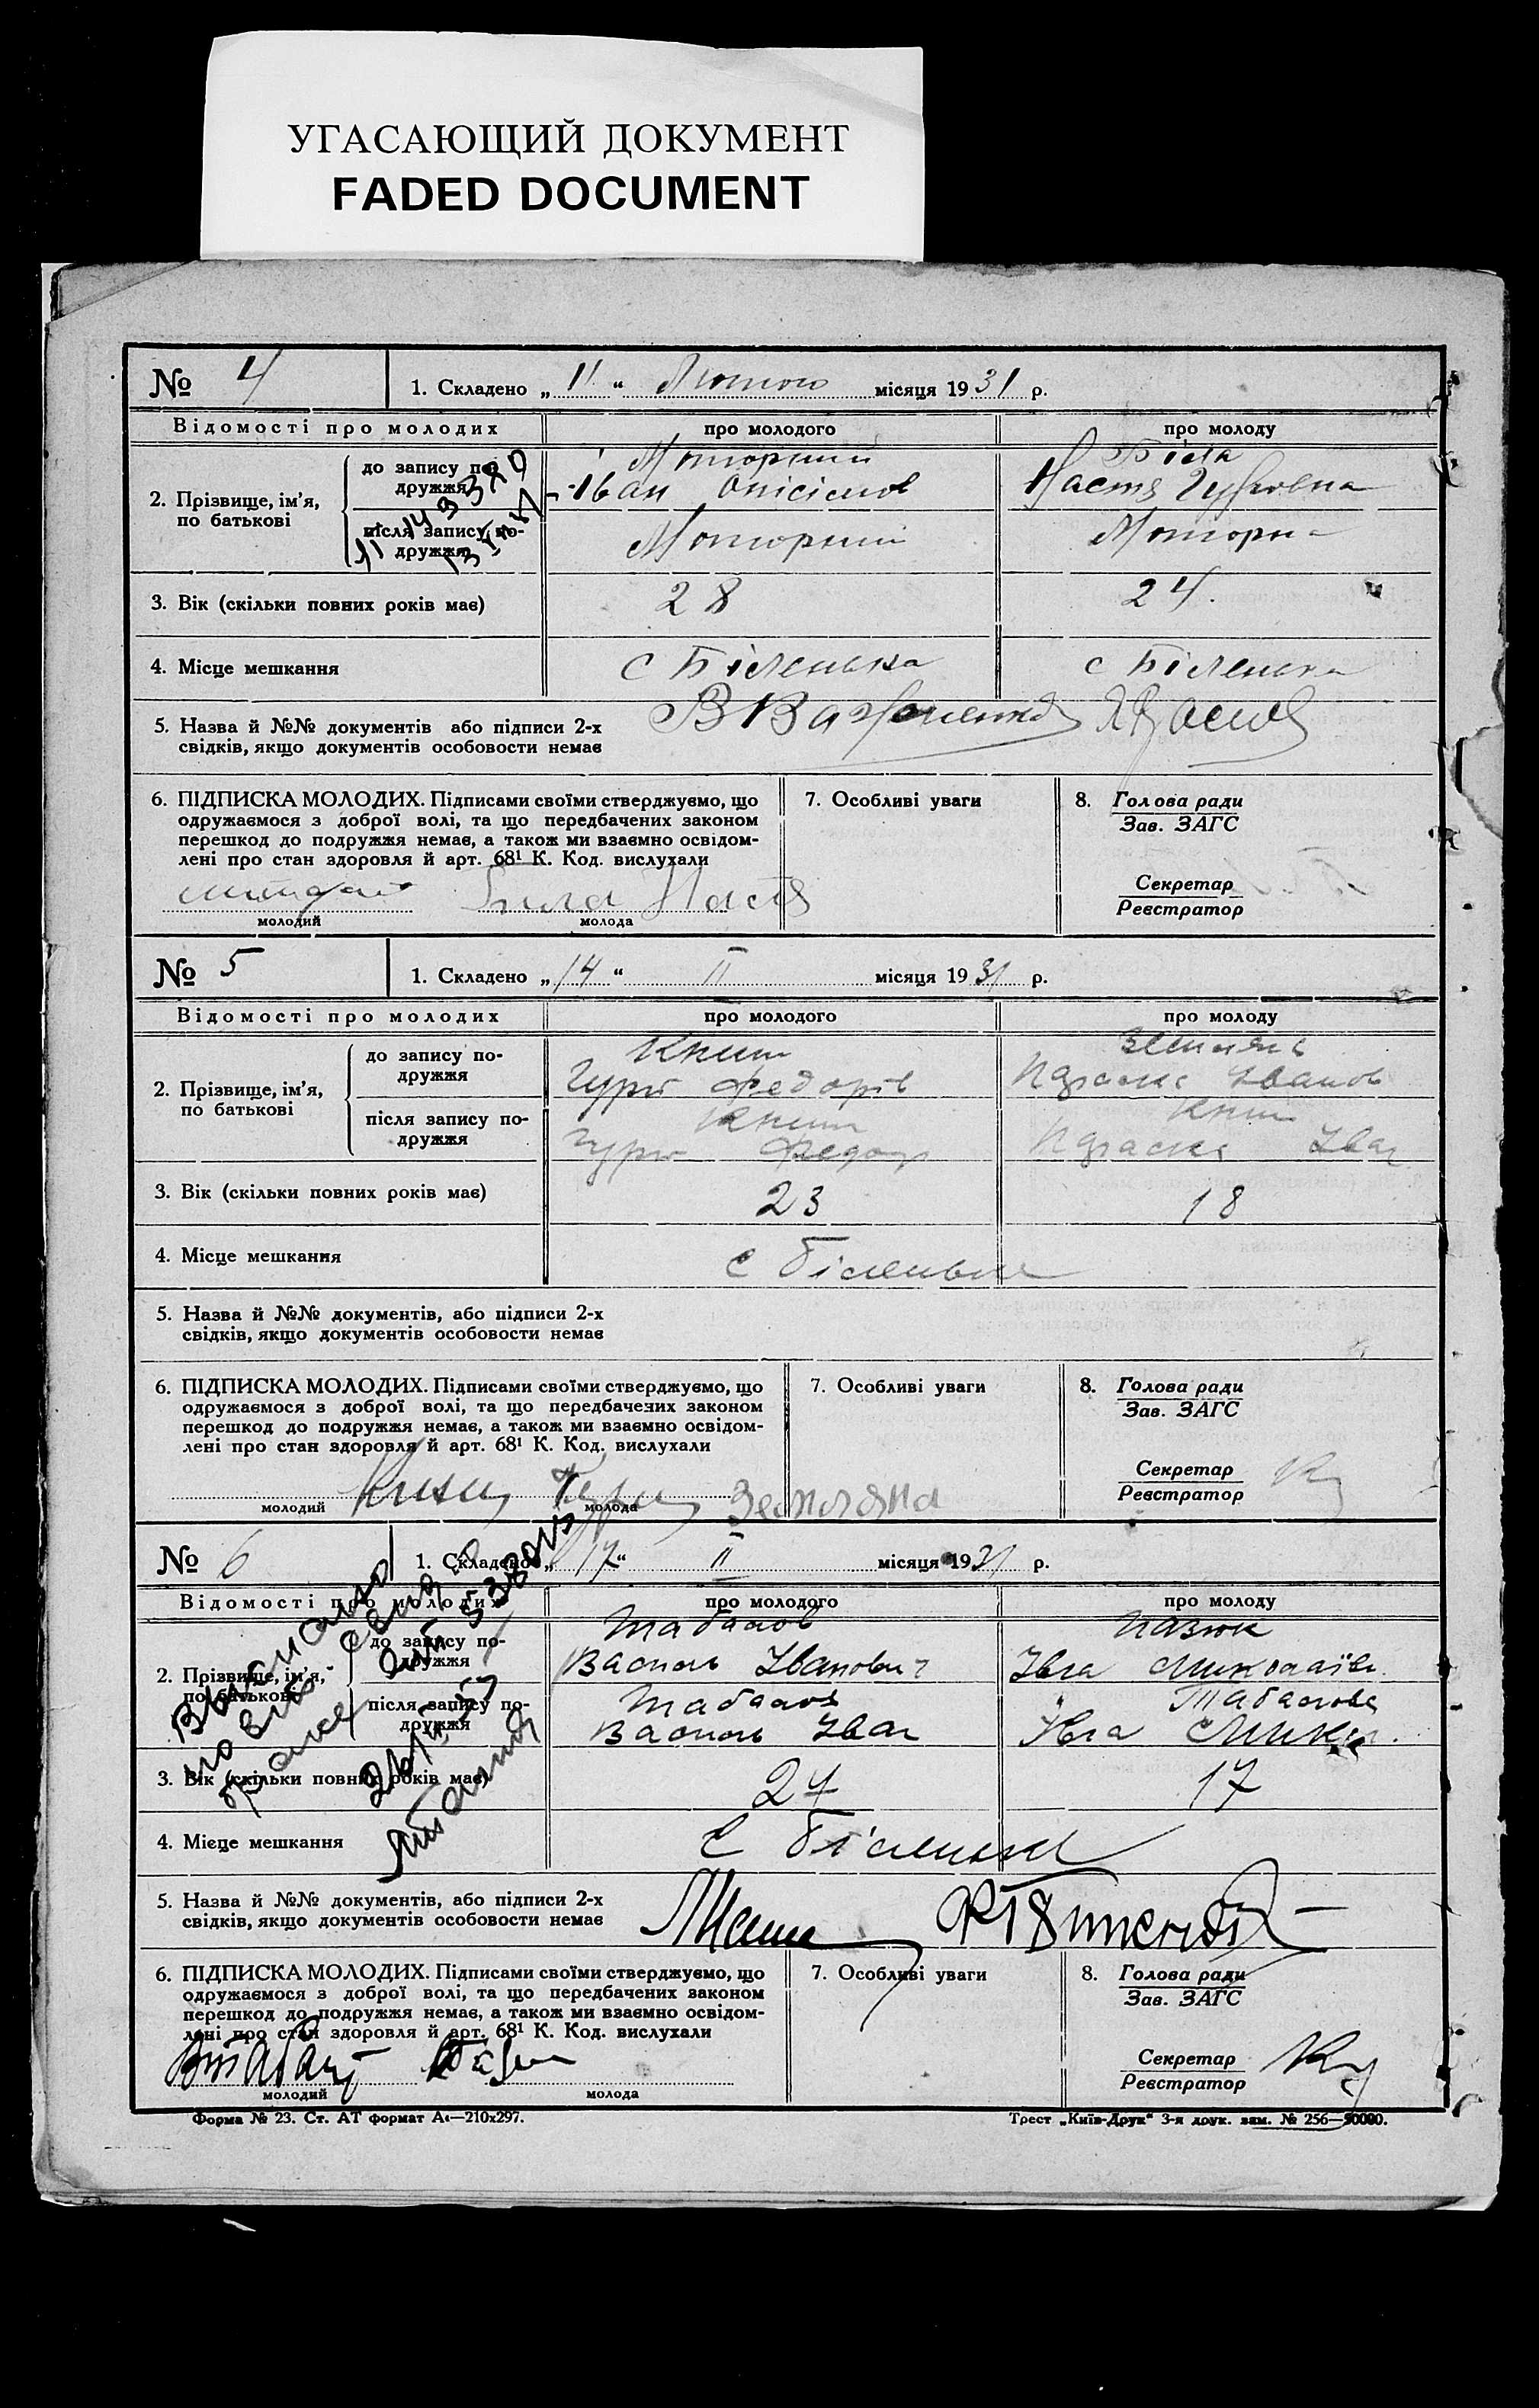 УГАСАЮЩИЙ ДОКУМЕНТ
FADED DOCUMENT
№ 4 1. Складено „11“ Лютого місяця 1931 р.
Відомості про молодих про молодого про молоду
2. Прізвище, ім’я, по батькові
до запису подружжя Моторний Біла
Іван Онісімов Настя Гурʼовна
після запису подружжя Моторний Моторна
3. Вік (скільки повних років має) 28 24.
4. Місце мешкання с Біленька с Біленька
5. Назва й №№ документів або підписи 2-х
свідків, якщо документів особовости немає
6. ПІДПИСКА МОЛОДИХ. Підписами своїми стверджуємо, що
одружаємося з доброї волі, та що передбачених законом
перешкод до подружжя немає, а також ми взаємно освідом-
лені про стан здоровля й арт. 68¹ К. Код. вислухали
7. Особливі уваги
8. Голова ради
Зав. ЗАГС
Секретар
Реєстратор
Била Настя
молодий молода
№ 5 1. Складено „14“ II місяця 1931 р.
Відомості про молодих про молодого про молоду
2. Прізвище, ім’я,
по батькові
до запису по-
дружжя
Книш
Гурій Федорів
Параска Іванов
після запису по-
дружжя
Книш Книш
Гурій Федор Параска Іван
3. Вік (скільки повних років має) 23 18
4. Місце мешкання с Біленьке
5. Назва й №№ документів, або підписи 2-х
свідків, якщо документів особовости немає
6. ПІДПИСКА МОЛОДИХ. Підписами своїми стверджуємо, що
одружаємося з доброї волі, та що передбачених законом
перешкод до подружжя немає, а також ми взаємно освідом-
лені про стан здоровля й арт. 68¹ К. Код. вислухали
7. Особливі уваги
8. Голова ради
Зав. ЗАГС
Секретар
Реєстратор
Книш Гурій Земляна
молодий молода
№ 6 1. Складено „17“ II місяця 1931 р.
Відомості про молодих про молодого про молоду
2. Прізвище, ім’я,
по батькові
до запису по-
дружжя
Табанов Пазюк
Василь Іванович Івга Миколаїв.
після запису по-
дружжя
Табанов Табанова
Василь Іван Івга Микол.
3. Вік (скільки повних років має) 24 17
4. Місце мешкання с Біленьке
5. Назва й №№ документів, або підписи 2-х
свідків, якщо документів особовости немає
6. ПІДПИСКА МОЛОДИХ. Підписами своїми стверджуємо, що
одружаємося з доброї волі, та що передбачених законом
перешкод до подружжя немає, а також ми взаємно освідом-
лені про стан здоровля й арт. 68¹ К. Код. вислухали
7. Особливі уваги
8. Голова ради
Зав. ЗАГС
Секретар
Реєстратор
молодий молода
Форма № 23. Ст. АТ формат А4—210х297. Трест „Київ-Друк“ 3-я друк. зам. № 256—50000.